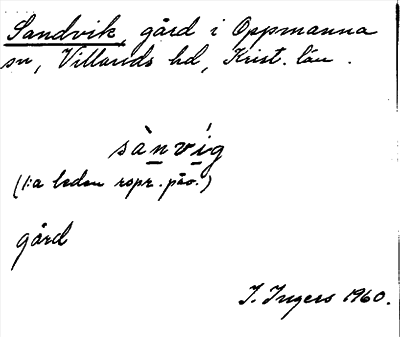 Sandvik, gård i Oppmanna
sn, Villands hd, Krist. län.
sànvíg
(1:a leden ropr. påv.)
gård
I. Ingers 1960.